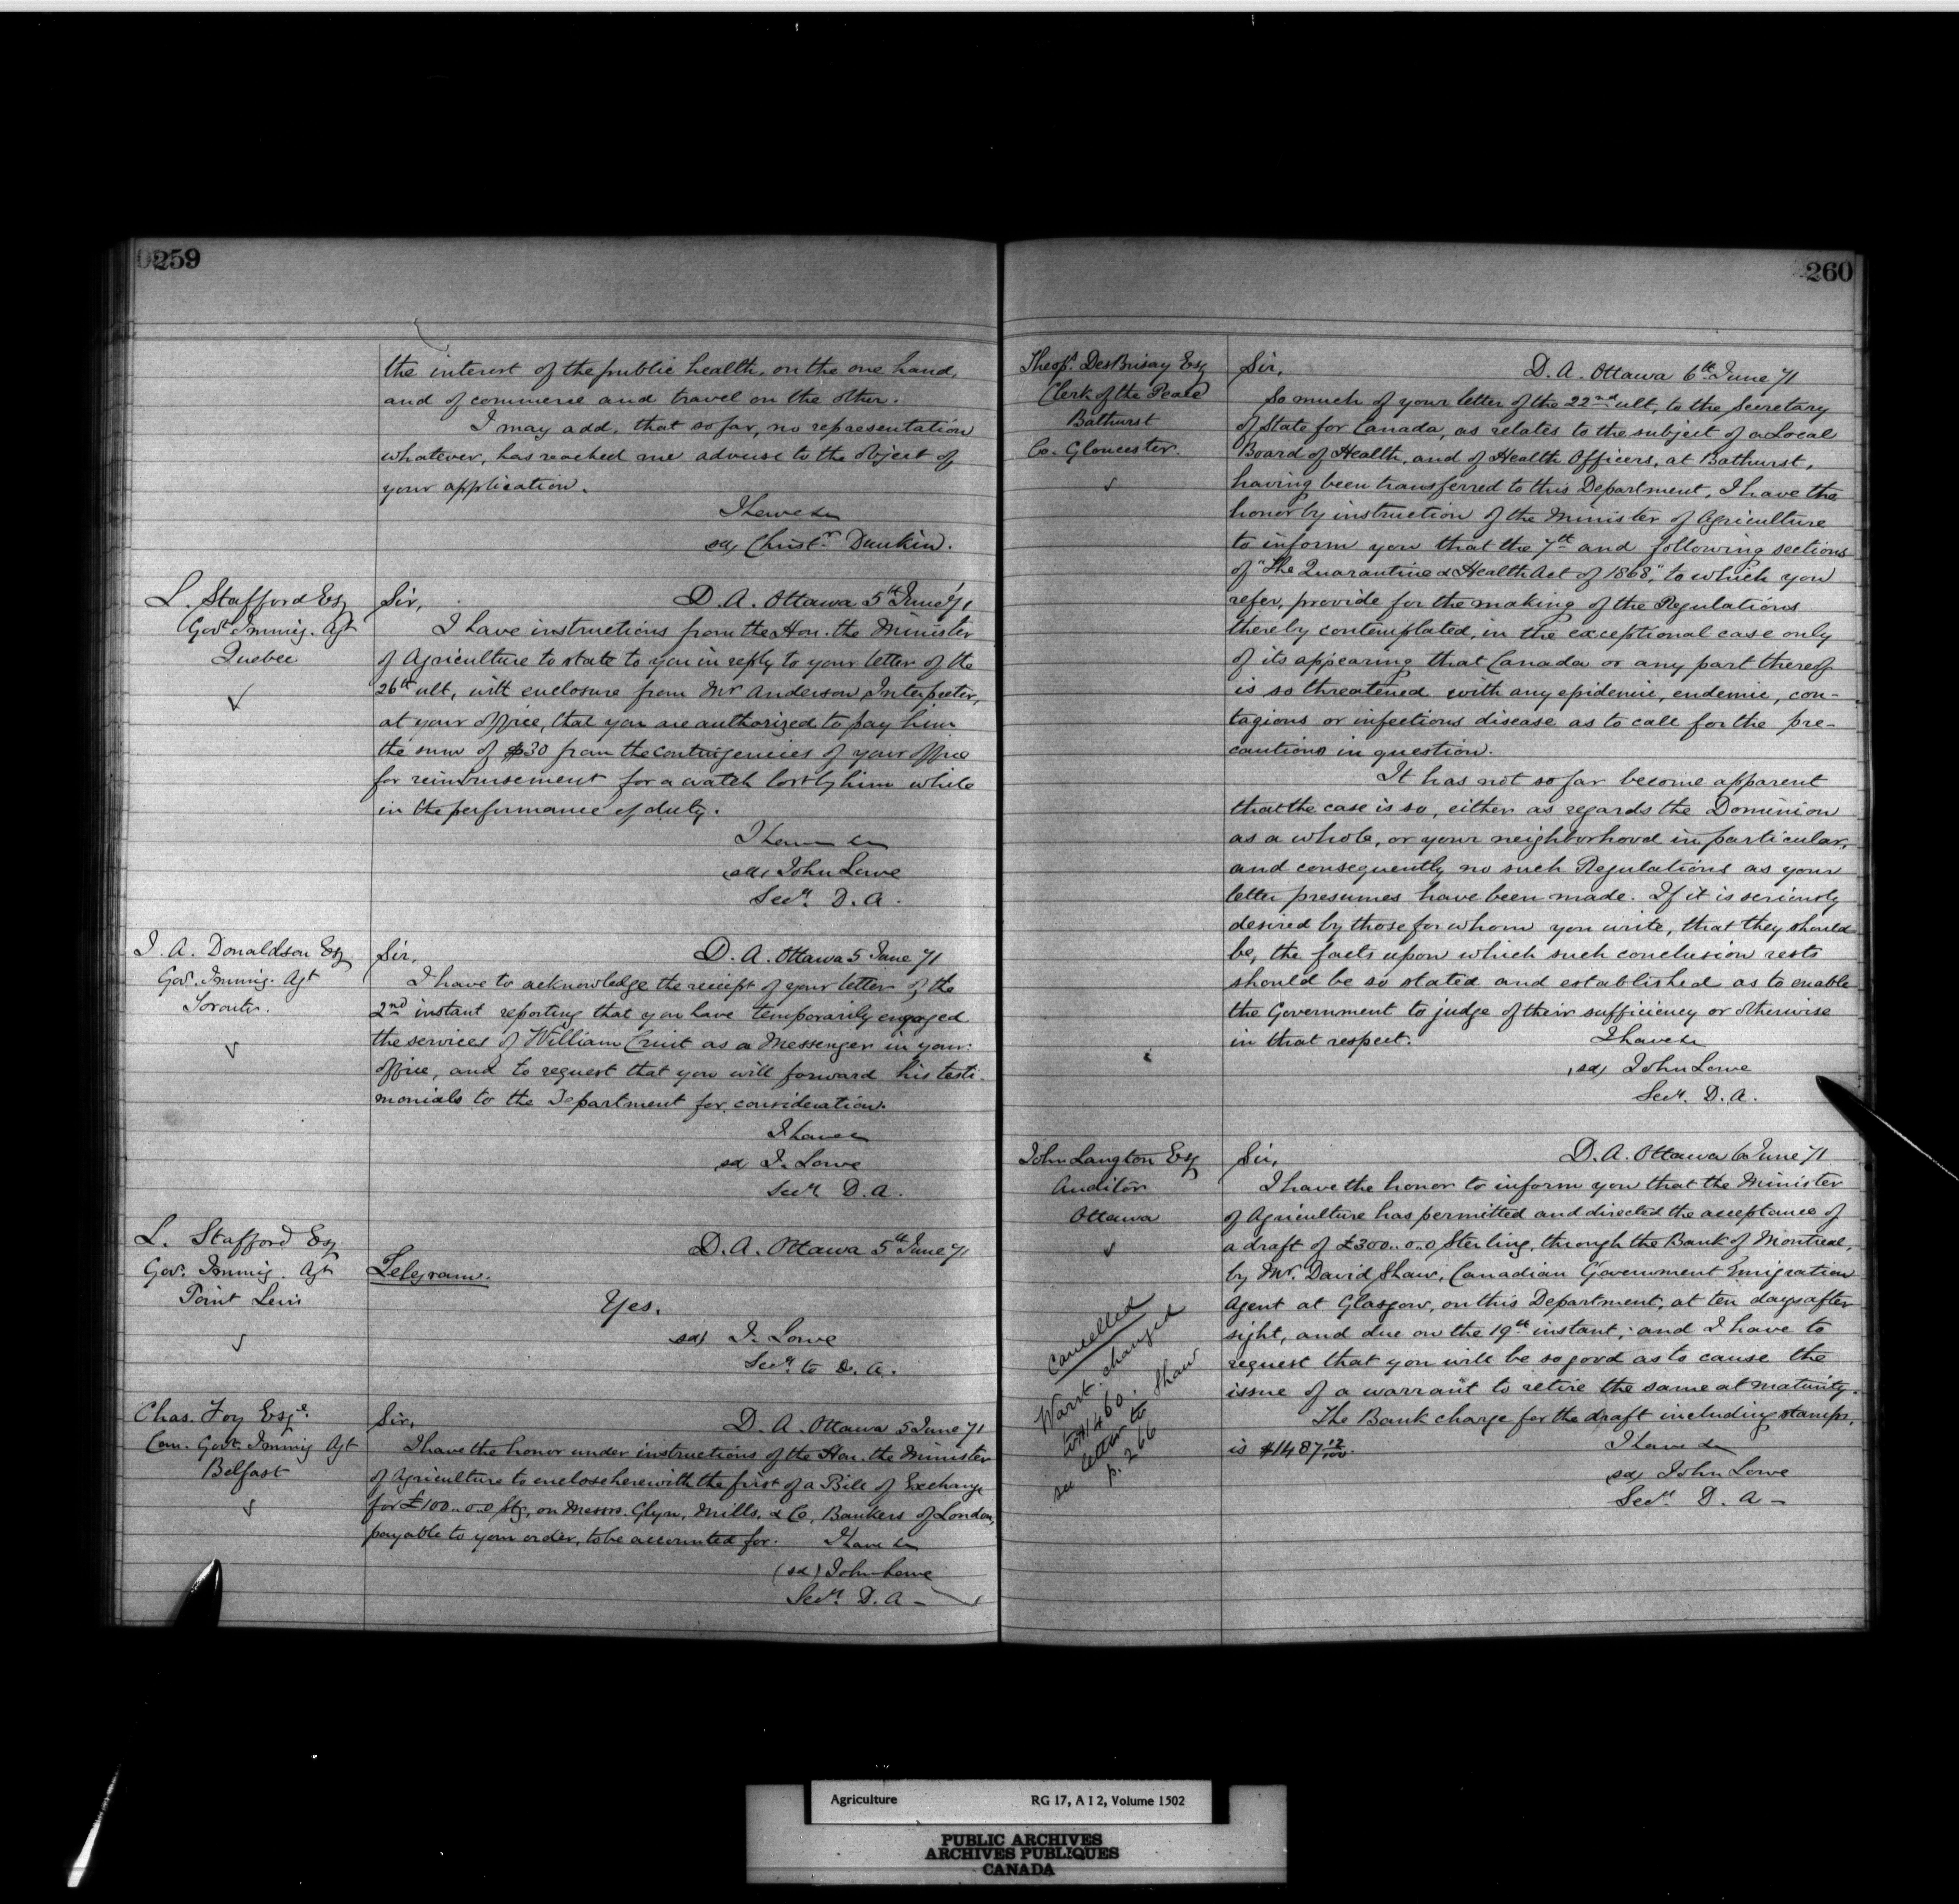 259
the interest of the public health, on the one hand,
and of commerce and travel on the other.
I may add, that so far, no representation
whatever, has reached me adverse to the object of
your application.
I have &c
sd, Christr. Dunkin.
L. Stafford Esq
Govt Immig. Agt
Quebec
Sir,
D. A. Ottawa 5th June '71
I have instructions from the Hon. the Minister
of Agriculture to state to you in reply to your letter of the
26th ult, with enclosure from Mr Anderson, Interpreter,
at your office, that you are authorized to pay him
the sum of $30 from the contingencies of your office
for reimbursement for a watch lost by him while
in the performance of duty.
I have &c
sd, John Lowe
Secy. D. A.
J. A. Donaldson Esq
Gov. Immig. Agt
Toronto.
Sir,
D. A. Ottawa 5 June 71
I have to acknowledge the receipt of your letter of the
2nd instant reporting that you have temporarily engaged
the services of William as a Messenger in your
office, and to request that you will forward his testi-
monials to the Department for consideration.
I have &c
sd J. Lowe
Secy D. A.
L. Stafford Esq
Gov. Immig. Agt
Point Levis
D. A. Ottawa 5th June 71
Telegram.
Yes.
sd) J. Lowe
Secy to D. A.
Chas. Foy Esqe.
Can. Govt. Immig Agt
Belfast
Sir,
D. A. Ottawa 5 June 71
I have the honor under instructions of the Hon. the Minister
of Agriculture to enclose herewith the first of a Bill of Exchange
for £100..0..0 Stg, on Messrs. Glyn, Mills, & Co, Bankers of London,
payable to your order, to be accounted for. I have &c
(sd) John Lowe
Secy. D. A -
260
Theops. DesBrisay Esq
Clerk of the Peace
Bathurst
Co. Gloucester.
Sir,
D. A. Ottawa 6th June 71
So much of your letter of the 22nd ult, to the Secretary
of State for Canada, as relates to the subject of a Local
Board of Health, and of Health Officers, at Bathurst,
having been transferred to this Department, I have the
honor by instruction of the Minister of Agriculture
to inform you that the 7th and following sections
of "The Quarantine & Health Act of 1868," to which you
refer, provide for the making of the Regulations
thereby contemplated, in the exceptional case only
of its appearing that Canada or any part thereof
is so threatened with any epidemic, endemic, con-
tagious or infectious disease as to call for the pre-
cautions in question.
It has not so far become apparent
that the case is so, either as regards the Dominion
as a whole, or your neighborhood in particular,
and consequently no such Regulations as your
letter presumes have been made. If it is seriously
desired by those for whom you write, that they should
be, the facts upon which such conclusion rests
should be so stated and established as to enable
the Government to judge of their sufficiency or otherwise
in that respect.
I have &c
sd, John Lowe
Secy. D. A.
John Langton Esq
Auditor
Ottawa
Sir,
D. A. Ottawa 6 June 71
I have the honor to inform you that the Minister
of Agriculture has permitted and directed the acceptance of
a draft of £300..0..0 Sterling, through the Bank of Montreal,
by Mr. David Shaw, Canadian Government Emigration
Agent at Glasgow, on this Department, at ten days after
sight, and due on the 19th instant; and I have to
request that you will be so good as to cause the
issue of a warrant to retire the same at maturity.
The Bank charge for the draft including stamps,
is $1487 12/100.
I have &c
sd, John Lowe
Secy. D. A -
Cancelled
Warrt. changed
to $1460.
see letter to Shaw
p. 266
Agriculture
RG 17, A I 2, Volume 1502
PUBLIC ARCHIVES
ARCHIVES PUBLIQUES
CANADA